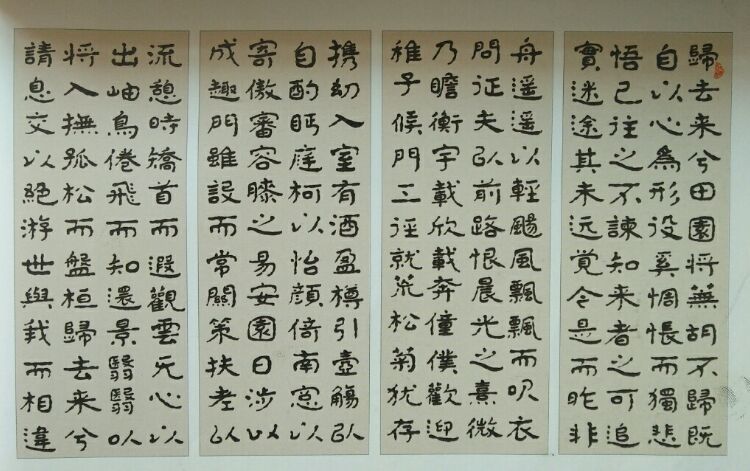 歸去来兮田園將蕪胡不歸既
自以心為形役奚惆悵而獨悲
悟已往之不諫知来者之可追
實迷途其未远覚今是而昨非
舟遥遥以輕颺風飄飄而吹衣
問征夫以前路恨晨光之熹微
乃瞻衡宇載欣載奔僮僕歡迎
稚子候門三徑就荒松菊犹存
携幼入室有酒盈樽引壺觴以
自酌眄庭柯以怡顏倚南窓以
寄傲審容膝之易安園日涉以
成趣門雖設而常關策扶老以
流憩時矯首而遐觀雲无心以
出岫鳥倦飛而知還景翳翳以
将入撫孤松而盤桓歸去来兮
請息交以絕游世與我而相違